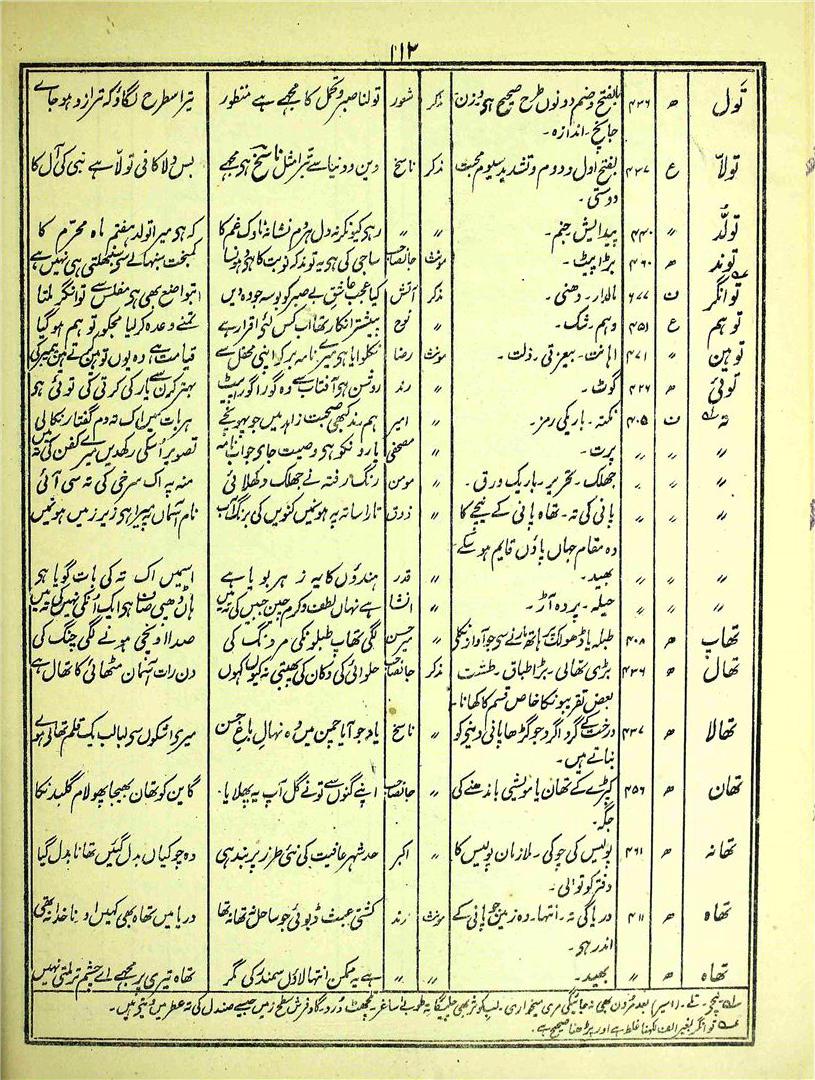 ۱۱۲
تول ھ ۴۳۶ بالفتح وضم دونوں طرح صحیح ہے وزن مذکر شور تولنا صبر و تحمل کا مجھے ہے منظور تیر اسطرح لگاؤ کہ ترازو ہو جاے
جانچ۔ اندازہ۔
تولّا ع ۴۳۷ بفتح اول و دوم و تشدید سیوم محبت مذکر ناسخ دین و دنیا سے تبرا مثل ناسخ ہی مجھے بس ولا کافی تولّا ہے نبی کی آل کا
دوستی۔
تولّد // ۴۴۰ پیدایش جنم۔ // // رہی کیونکر نہ دل ہر دم نشانہ ناوک غم کا کہ ہی میرا تولد ہفتم ماہ محرّم کا
توند ھ ۴۶۰ بڑا پیٹ۔ مونث جانصاحب ساجی کی ہی یہ توند کہ نوبت کا ہی کمبخت سنبھالے سے سنبھلتی ہی نہیں ہے
توانگر ف ۶۷۷ مالدار۔ دھنی۔ مذکر آتش کیا عجب عاشق بے صبر کو بوسہ جو دیں تواضع بھی ہی مفلس سے توانگر ملتا
توہم ع ۴۵۱ وہم۔ شک۔ // نوح بیشتر انکار تھا اب کس لئی اقرار ہے تمنے وعدہ کر لیا مجکو توہم ہو گیا
توہین // ۴۷۱ اہانت۔ بیعزتی۔ ذلت۔ مونث رضا نکلوایا ہی میرے نامہ بر کو اپنی محفل سے قیامت ہے وہ یوں توہین کرتے ہیں پیمبر کی
توئی ھ ۴۲۶ گوٹ۔ // رند روشن ہی آفتاب سے وہ گورا گورا پیٹ بہتر کرن سے یار کی کرتی کی توئی ہی
تہ ف ۴۰۵ نکتہ۔ باریکی رمز۔ // امیر ہم رند کبھی صحبت زاہد میں جو پہونچے ہر بات میں اک تہ دم گفتار نکالی
// // // پرت۔ // مصحفی یارو نکو ہی وصیت جاے جواب نامہ تصویر اُسکی رکھدیں میرے کفن کی تہ میں
// // // جھلک۔ تحریر۔ باریک ورق۔ // مومن رنگ رفتہ نے جھلک دکھلائی منہ پہ اک سرخی کی تہ سی آئی
// // // پانی کی تہ۔ تھاہ پانی کے نیچے کا // ذوق تارا سا تہ پہ ہونیں کنویں کی برنگ آب نام آسماں پہ میرا ہی زیر زمیں ہونمیں
وہ مقام جہاں پاؤں قایم ہو سکے
// // // بھید۔ // قدر ہندؤں کا یہ ز ہر بویا ہے اسمیں اک تہ کی بات گویا ہی
// // // حیلہ۔ پردہ آڑ۔ // انشا ہے نہاں لطف و کرم چین جبیں کی تہ میں ہاں وھیں صاف ہی ایک اُنکی نہیں کی تہ میں
تھاپ ھ ۴۰۸ طبلہ یا ڈھولک پر ہاتھ مارنے سے جو آواز نکلی // میرحسن لگی تھاپ طبلونکی مردنگ کی صدا اونچی ہونے لگی چنگ کی
تھال ھ ۴۳۶ بڑی تھالی۔ بڑا طباق۔ طشت مذکر جانصاحب حلوائی کی دکان کی پھبتی نہ کیوں کہوں دن رات آسمان مٹھائی کا تھال ہے
بعض تقریبو نکا خاص قسم کا کھانا۔
تھالا ھ ۴۳۷ درخت کے گرد اگرد جو گڑھا پانی دینے کو // ناسخ یاد جو آیا چمن میں وہ نہال باغ حسن میری اشکوں سی لبالب یک قلم تھالی ہوے
بناتے ہیں۔
تھان ھ ۴۵۶ کپڑے کے تھان یا مویشی باندھنے کی // جانصاحب اپنے گنوں سے تو نے گل آپ یہ پھلایا۔ گاین کو تھان بھیجا پھولام گلبدنکا
جگہ۔
تھانہ ھ ۴۶۱ پولیس کی چوکی۔ ملازمان پولیس کا // اکبر حد شہر عافیت کی نئی طرز پر بندہی وہ چوکیاں بدل گئیں تھانا بدل گیا
دفتر کوتوالی۔
تھاہ ھ ۴۱۱ دریا کی تہ۔ انتہا۔ وہ زمین جو پانی کے مونث رند کشتی عبث ڈبوئی جو ساحل نتھا نتھا دریا میں تھاہ بھی کہیں او ناخدا نہ تھی
اندر ہو۔
تھاہ ھ // بھید۔ // // ہے یہ ممکن انتہا لاؤں سمندر کی مگر تھاہ تیری پر مجھے اے چشم تر ملتی نہیں
نیچے۔ تلے۔ (امیر) بعد مردن بھی نہ جائیگی مری میخواری۔ لب کوثر بھی چلیگا تہ طوبیٰ ساغر۔ تلچھٹ دُرد۔ گاد فرش سطح زمیں جیسے صندل کی تہ عطر میں دیتے ہیں۔
توانگر بغیر الف لکہنا غلط ہے اور پڑھنا صحیح ہے۔